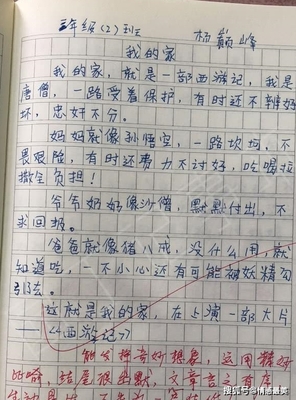 三年级（2）班 杨巅峰
我的家
我的家，就是一部西游记，我是
唐僧，一路受着保护，有时还不辨好
坏，忠奸不分。
妈妈就像孙悟空，一路坎坷，不
畏艰险，有时还费力不讨好，吃喝拉
撒全负担！
爷爷奶奶像沙僧，默默付出，不
求回报。
爸爸就像猪八戒，没什么用，就
知道吃，一不小心还有可能被妖精勾
引去。
这就是我的家，在上演一部大片
——《西游记》
能分神奇好想象，运用精妙
比喻，结尾很幽默，文章言之有
搜狐号@情通最美